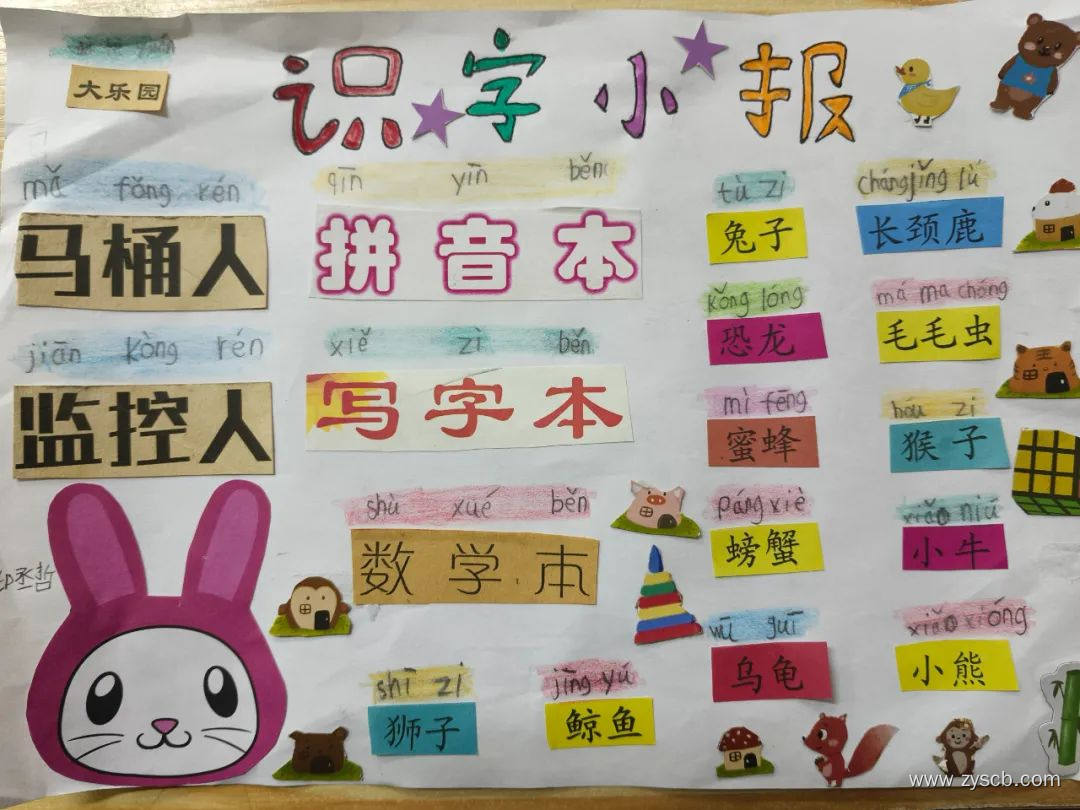 识字小报
大乐园
mǎ fǒng rén
马桶人
jiān kòng rén
监控人
qīn yīn běn
拼音本
xiě zì běn
写字本
shù xué běn
数学本
shī zi
狮子
jīng yú
鲸鱼
tù zi
兔子
kǒng lóng
恐龙
mì fēng
蜜蜂
páng xiè
螃蟹
wū guī
乌龟
cháng jǐng lù
长颈鹿
má ma chóng
毛毛虫
hóu zi
猴子
xiǎo niú
小牛
xiǎo xióng
小熊
丞哲
www.zyscb.com